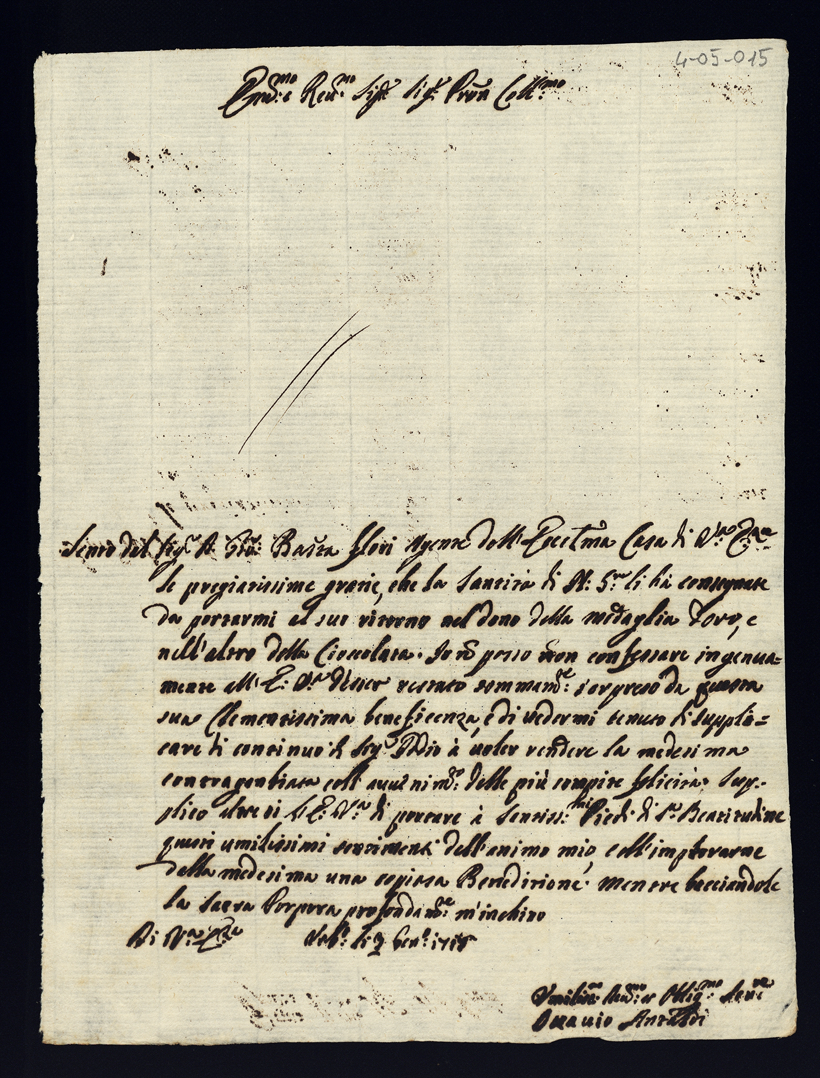 4-05-015
Em:o e Reu:mo Sig:r Sig:r Pron Coll:mo
Sento dal Sig:r D. Gio: Batta Flori Agente dell'Eccel:ma Casa di V:ra Em:za
le pregiatissime grazie, che la Santità di N: S:re li hà consegnate
da portarmi al suo ritorno nel dono della medaglia d'oro, e
nell'altro della Cioccolata. Io nõ posso non confessare ingenua=
mente all'E: V:ra d'esser restato sommam:te sorpreso da questa
sua Clementissima beneficenza, e di vedermi tenuto di suppli=
care di continuo il Sig:r Iddio à uoler rendere la medesima
contragambiata coll'auuenim:to delle più compite felicità. Sup-
plico altresi l'E: V:ra di portare à Santiss:mi Piedi di S:a Beatitudine
questi umilissimi sentimenti dell'animo mio, coll'implorarne
dalla medesima una copiosa Benedizione. Mentre bacciandole
la Sacra Porpora profondam:te m'inchino
Di V:ra Em:za Urb:o li 9 Gen:o
Vmiliss:mo Deu:mo et Oblig:mo Seru:re
Ottauio Antaldi